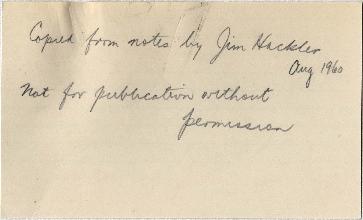 Copied from notes by Jim Hackler
Aug 1960
Not for publication without
permission